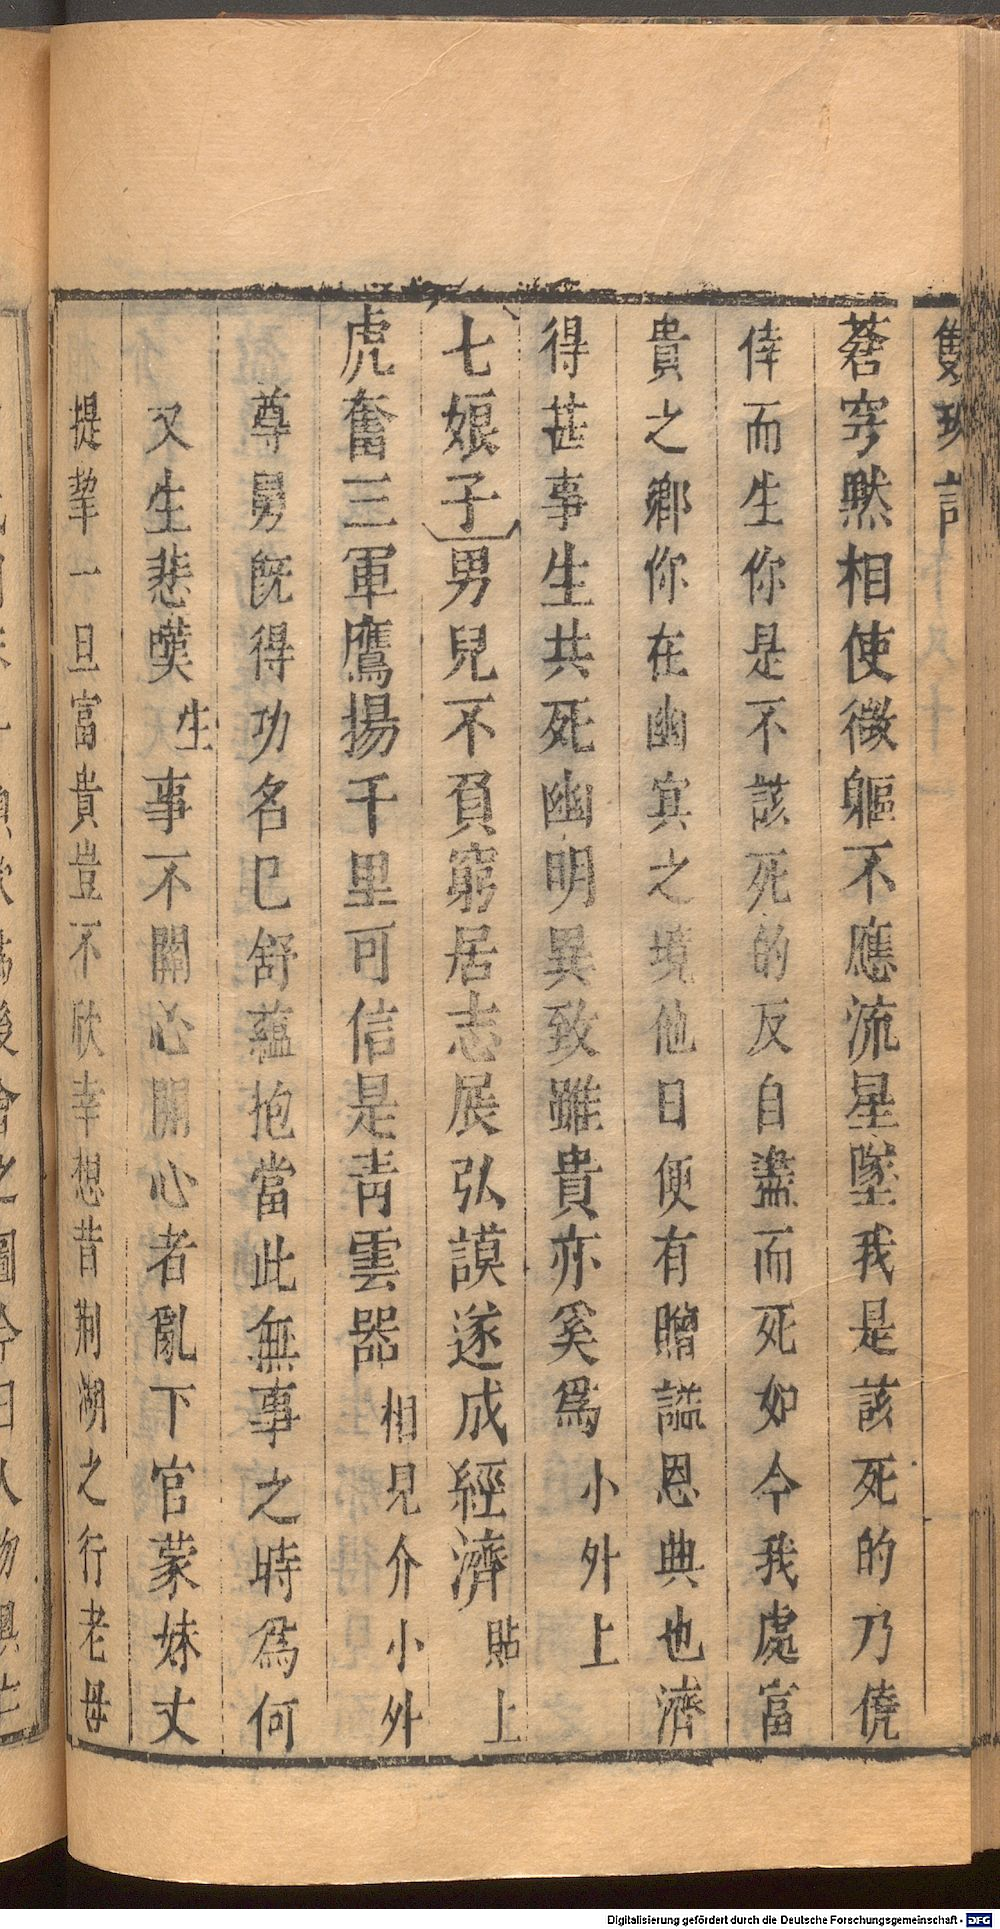 雙珠記
蒼穹黙相使微軀不應流星墜我是該死的乃僥
倖而生你是不該死的反自盡而死如今我處富
貴之鄉你在幽冥之境他日便有贈謚恩典也濟
得甚事生共死幽明異致雖貴亦奚爲小外上
七娘子男兒不負窮居志展弘謨遂成經濟貼上
虎奮三軍鷹揚千里可信是青雲器相見介小外
尊舅既得功名已舒蘊抱當此無事之時爲何
又生悲嘆生事不關心關心者亂下官蒙妹丈
提挈一旦富貴豈不欣幸想昔荆湖之行老母
Digitalisierung gefördert durch die Deutsche Forschungsgemeinschaft - DFG